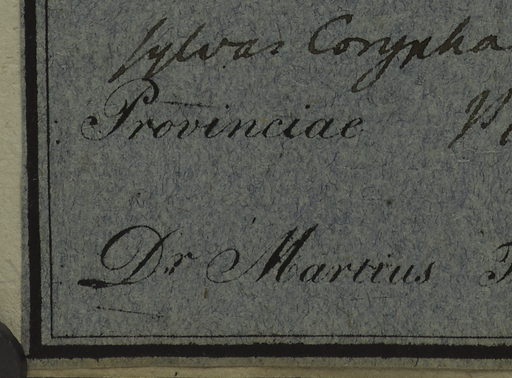 sylvas Corypha
Provinciae
Dr Martius